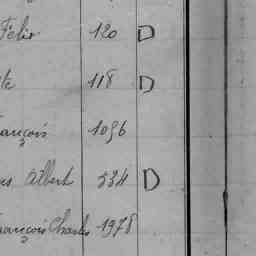 Félix 120 D
te 118 D
ançois 1096
us Albert 534 D
ançois Charles 1978